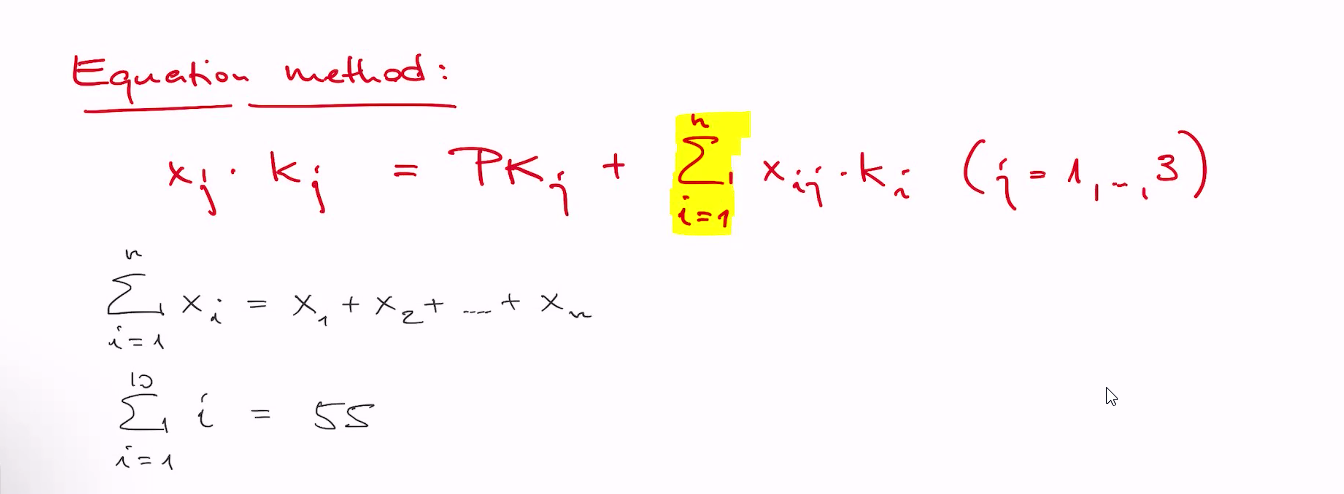 Equation method:
x_j · k_j = PK_j + \sum_{i=1}^{n} x_{ij} · k_i (j = 1, ..., 3)
\sum_{i=1}^{n} x_i = x_1 + x_2 + ... + x_n
\sum_{i=1}^{10} i = 55